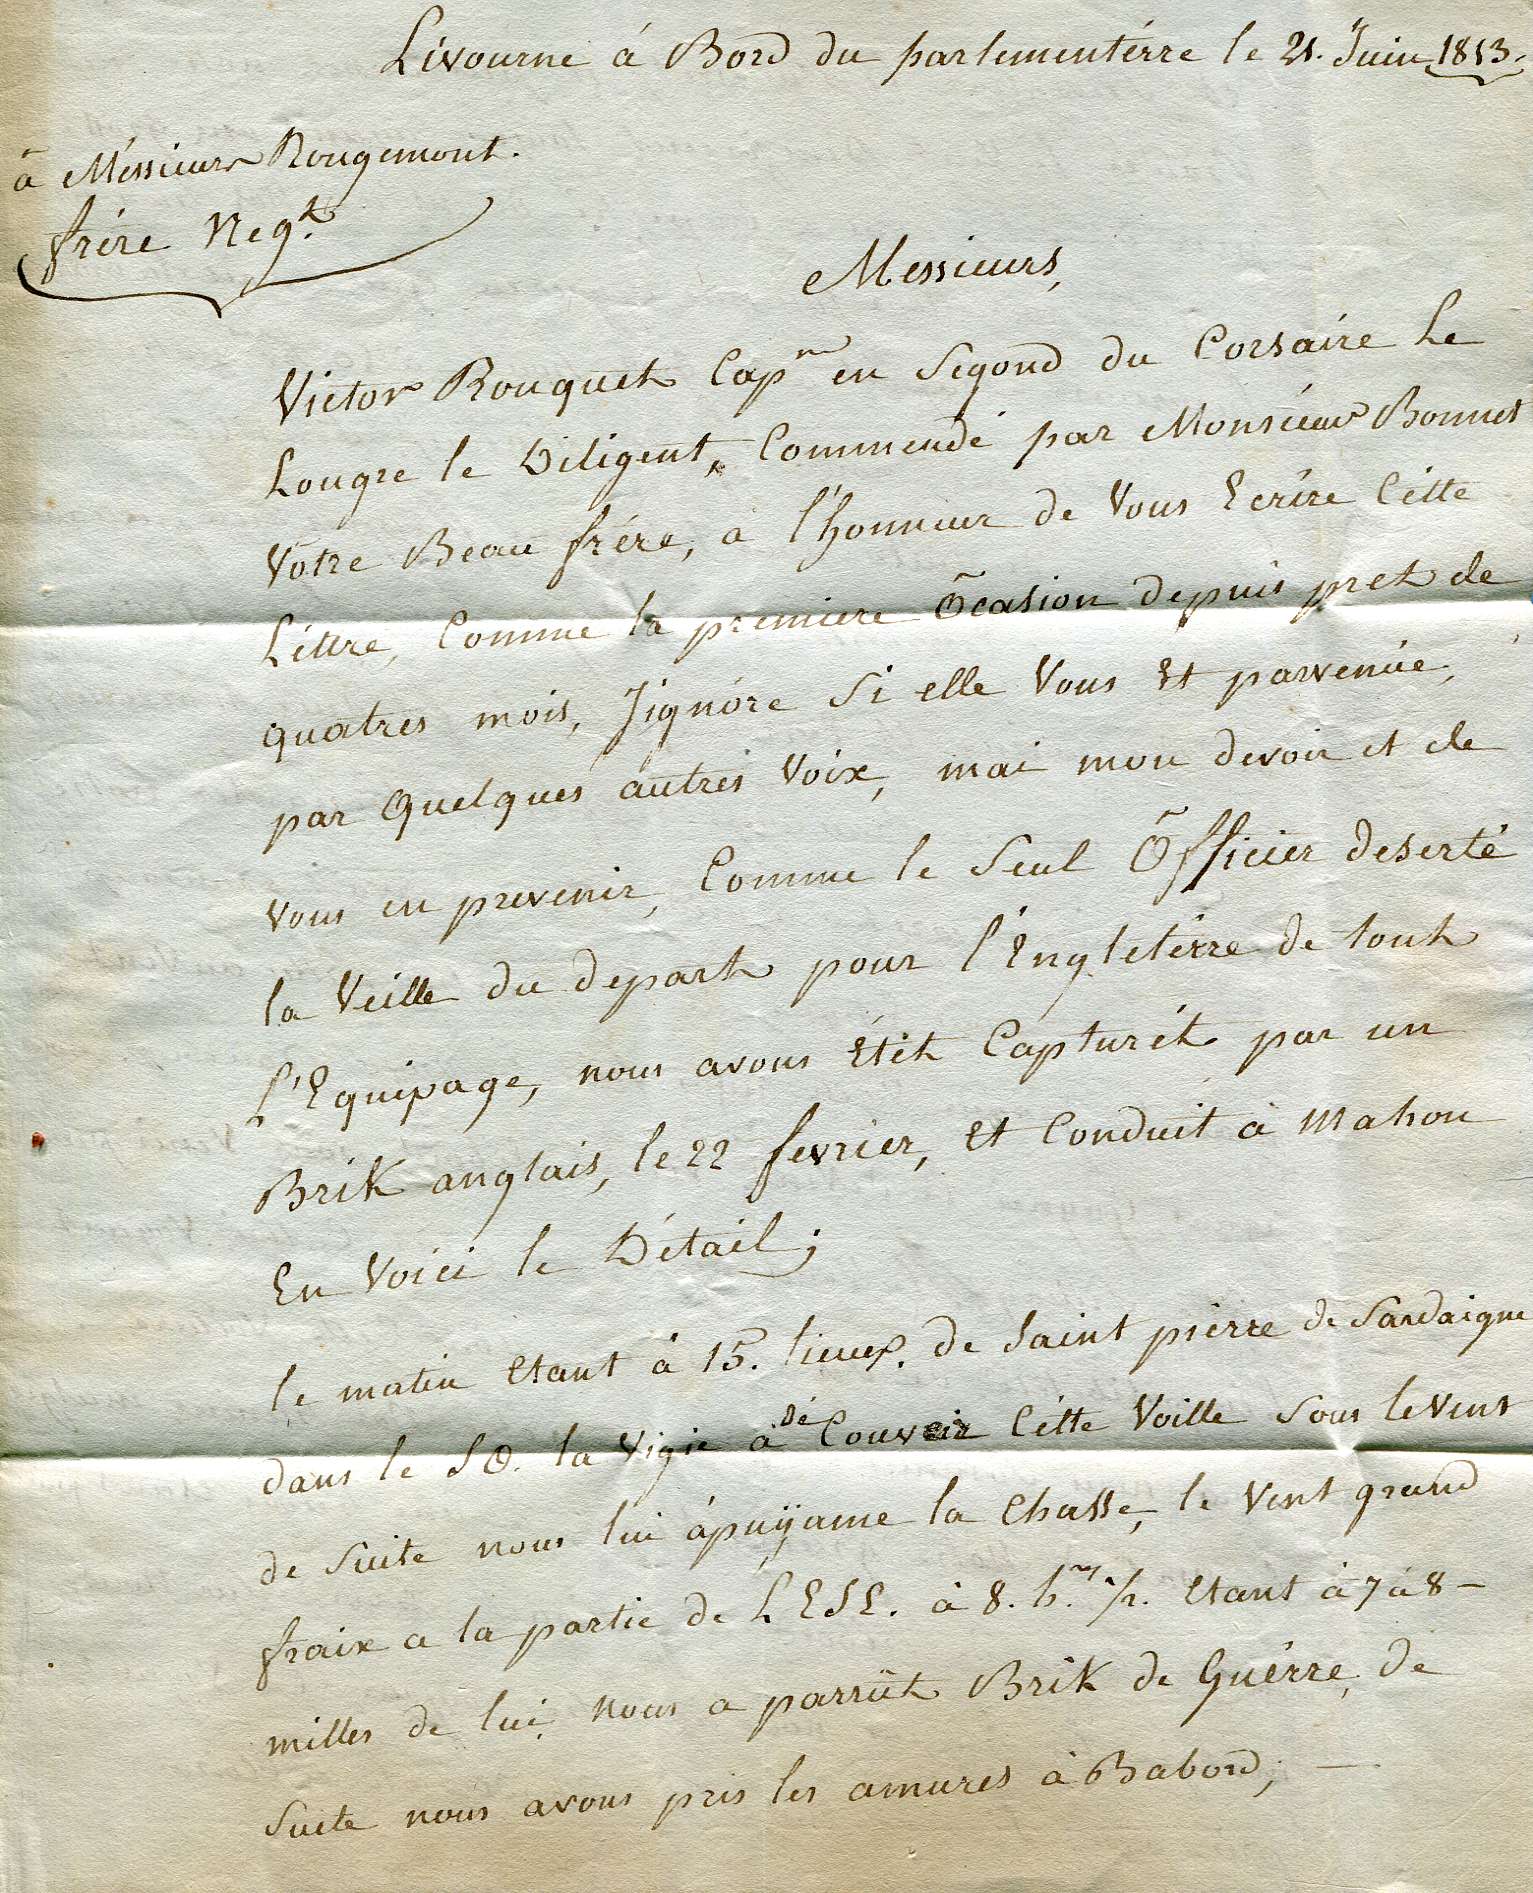 Livourne á Bord du parlementérre le 21. Juin 1813.
à Méssieurs Rougemont.
frére Neg.t
Messieurs,
Victor Rouquet Cap.ne en Segond du Corsaire Le
Lougre le Diligent, Commendé par Monsieur Bonnet
Votre Beau frére, a l'honneur de Vous Ecrire Cétte
Léttre, Comme la premiere Ocasion depuis pret de
quatres mois, Jignóre Si elle Vous Et parvenúe,
par Quelques autres Voix, mai mon devoir et de
vous en prevenir, Comme le Seul Officier deserté
la Veille du depart pour l'Engletérre de tout
L'Equipage, nous avons Étét Capturét par un
Brik anglais, le 22 fevrier, Et Conduit à Mahon
En Voici le Détail;
le matin Etant à 15. lieues. de Saint piérre de Sardaigne
dans le SO. la Vigie à dé Couvrir Cétte Voille Sous le Vent
de Suite nous lui ápuÿame la Chasse, le Vent grand
fraix a la partie de L'ESE. à 8. h.res 1/2. Etant à 7 à 8 —
milles de lui, Nous a parrût Brik de Guérre, de
Suite nous avons pris les amures à Babord; —